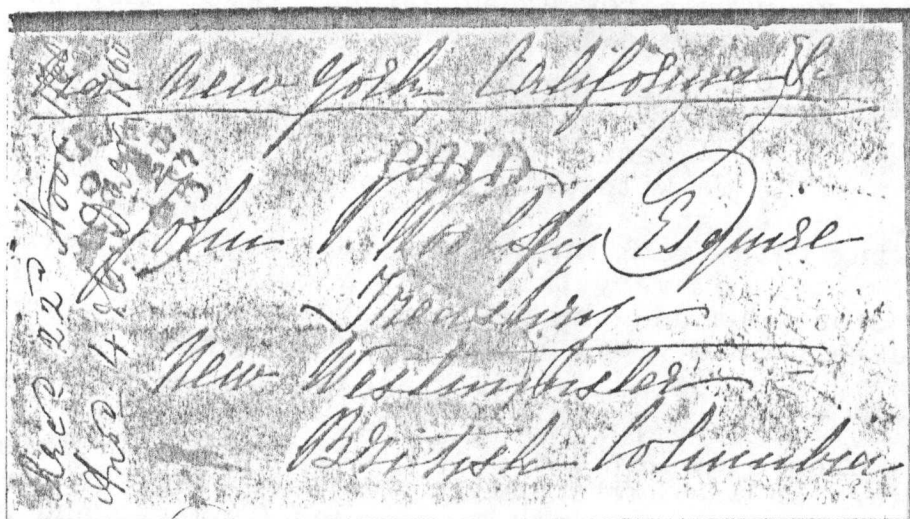 New York California &c
PAID
John Esquire
Treasury —
New Westminster
British Columbia
Recd 22 Nov
Ansd 4